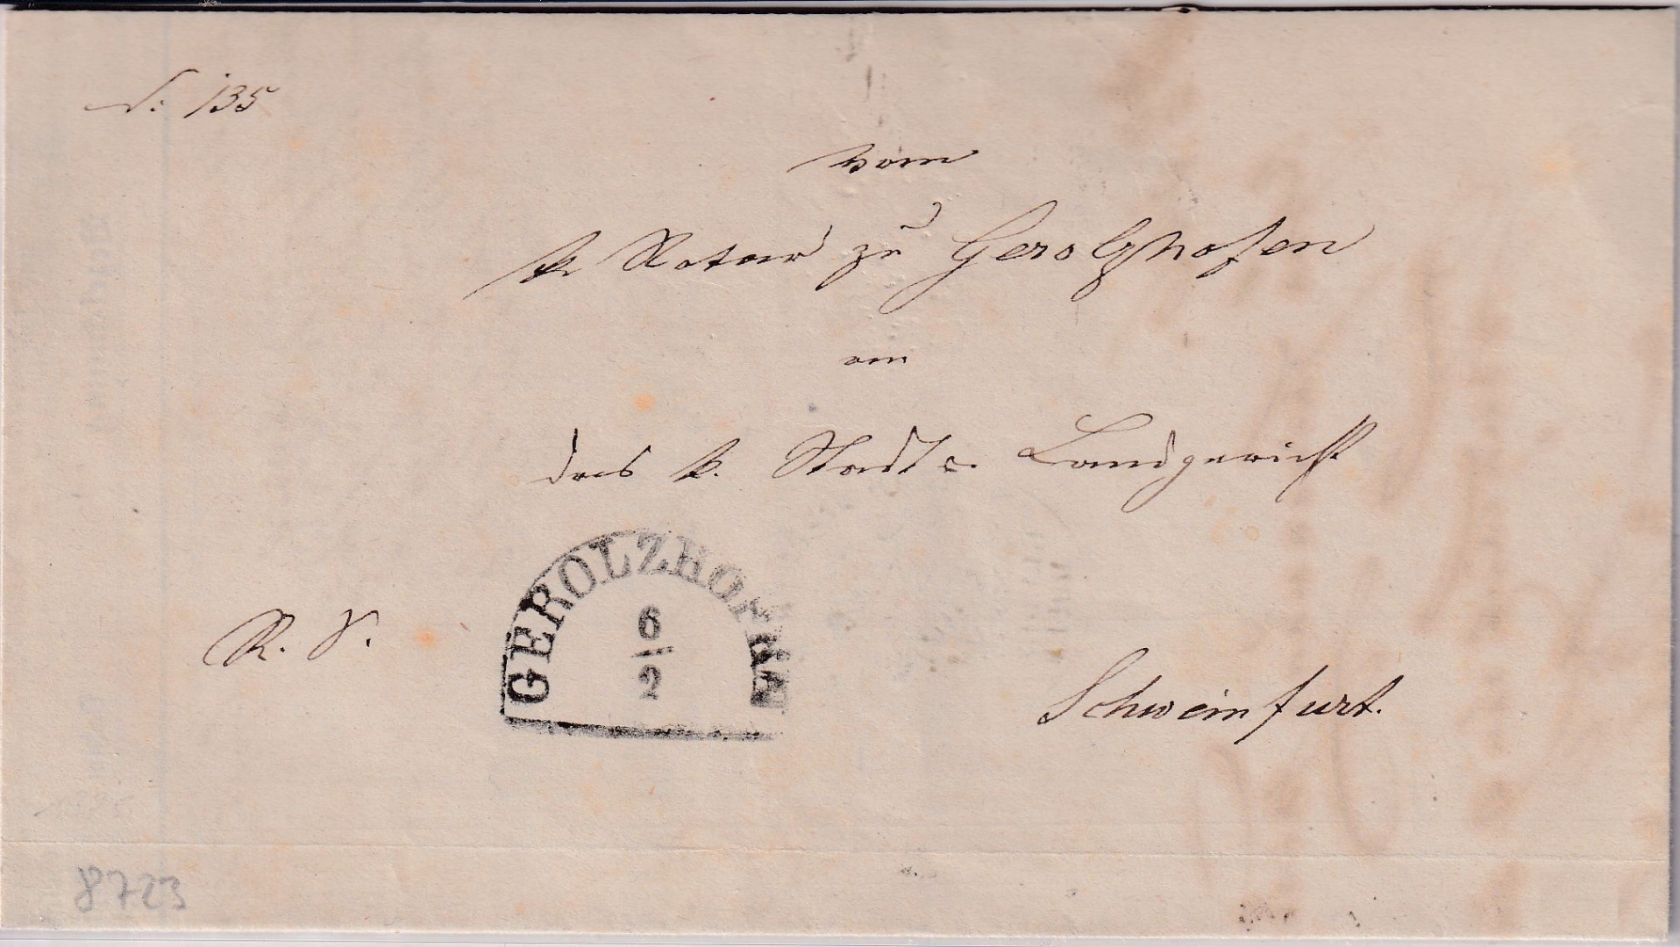 N: 135
vom
k. Notar zu Gerolzhofen
an
das k. Stadt u. Landgericht
GEROLZHOFEN
6
2
R. S.
Schweinfurt.
8723